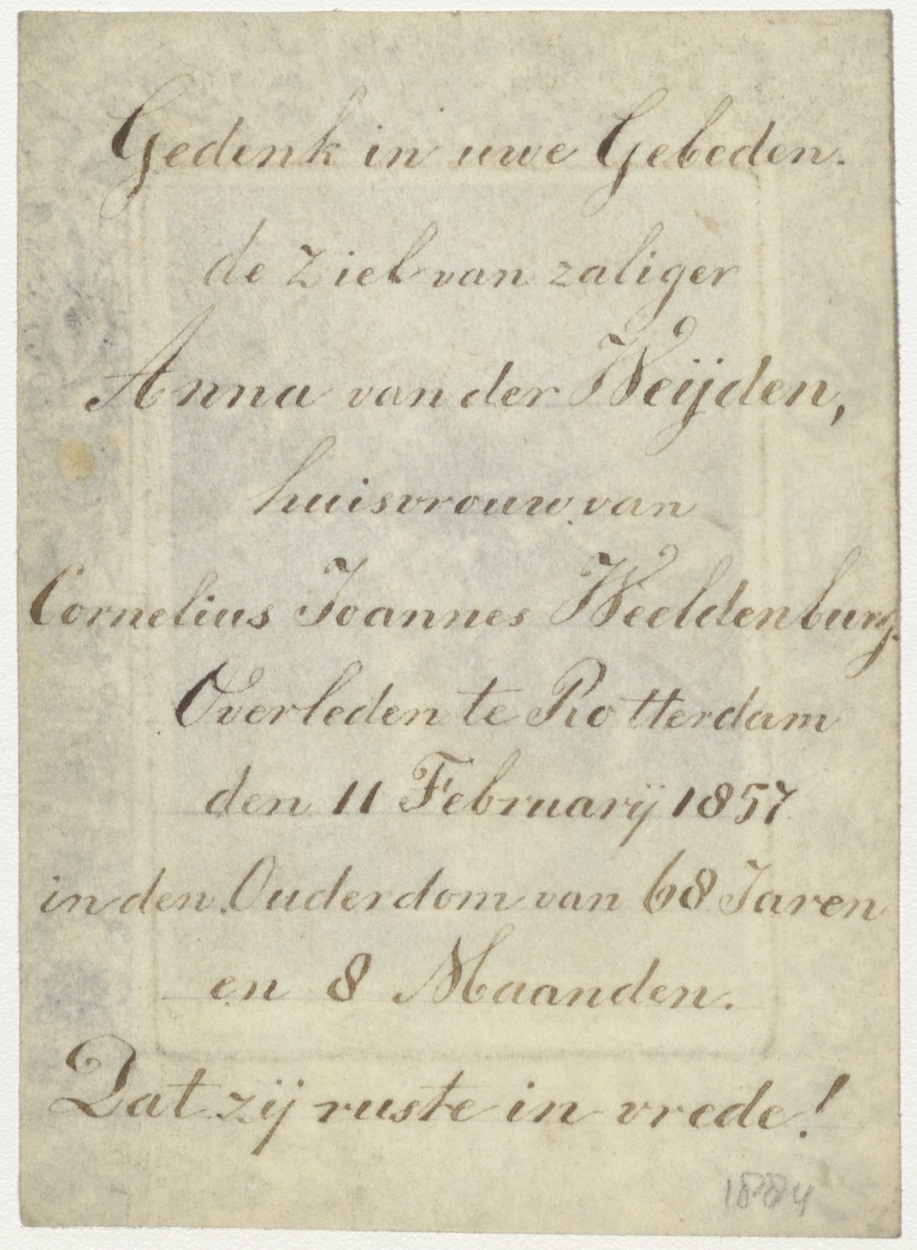 Gedenk in uwe Gebeden.
de Ziel van zaliger
Anna van der Weijden,
huisvrouw van
Cornelius Joannes Weeldenburg.
Overleden te Rotterdam
den 11 Februarij 1857
in den Ouderdom van 68 Jaren
en 8 Maanden.
Dat zij ruste in vrede!
1884